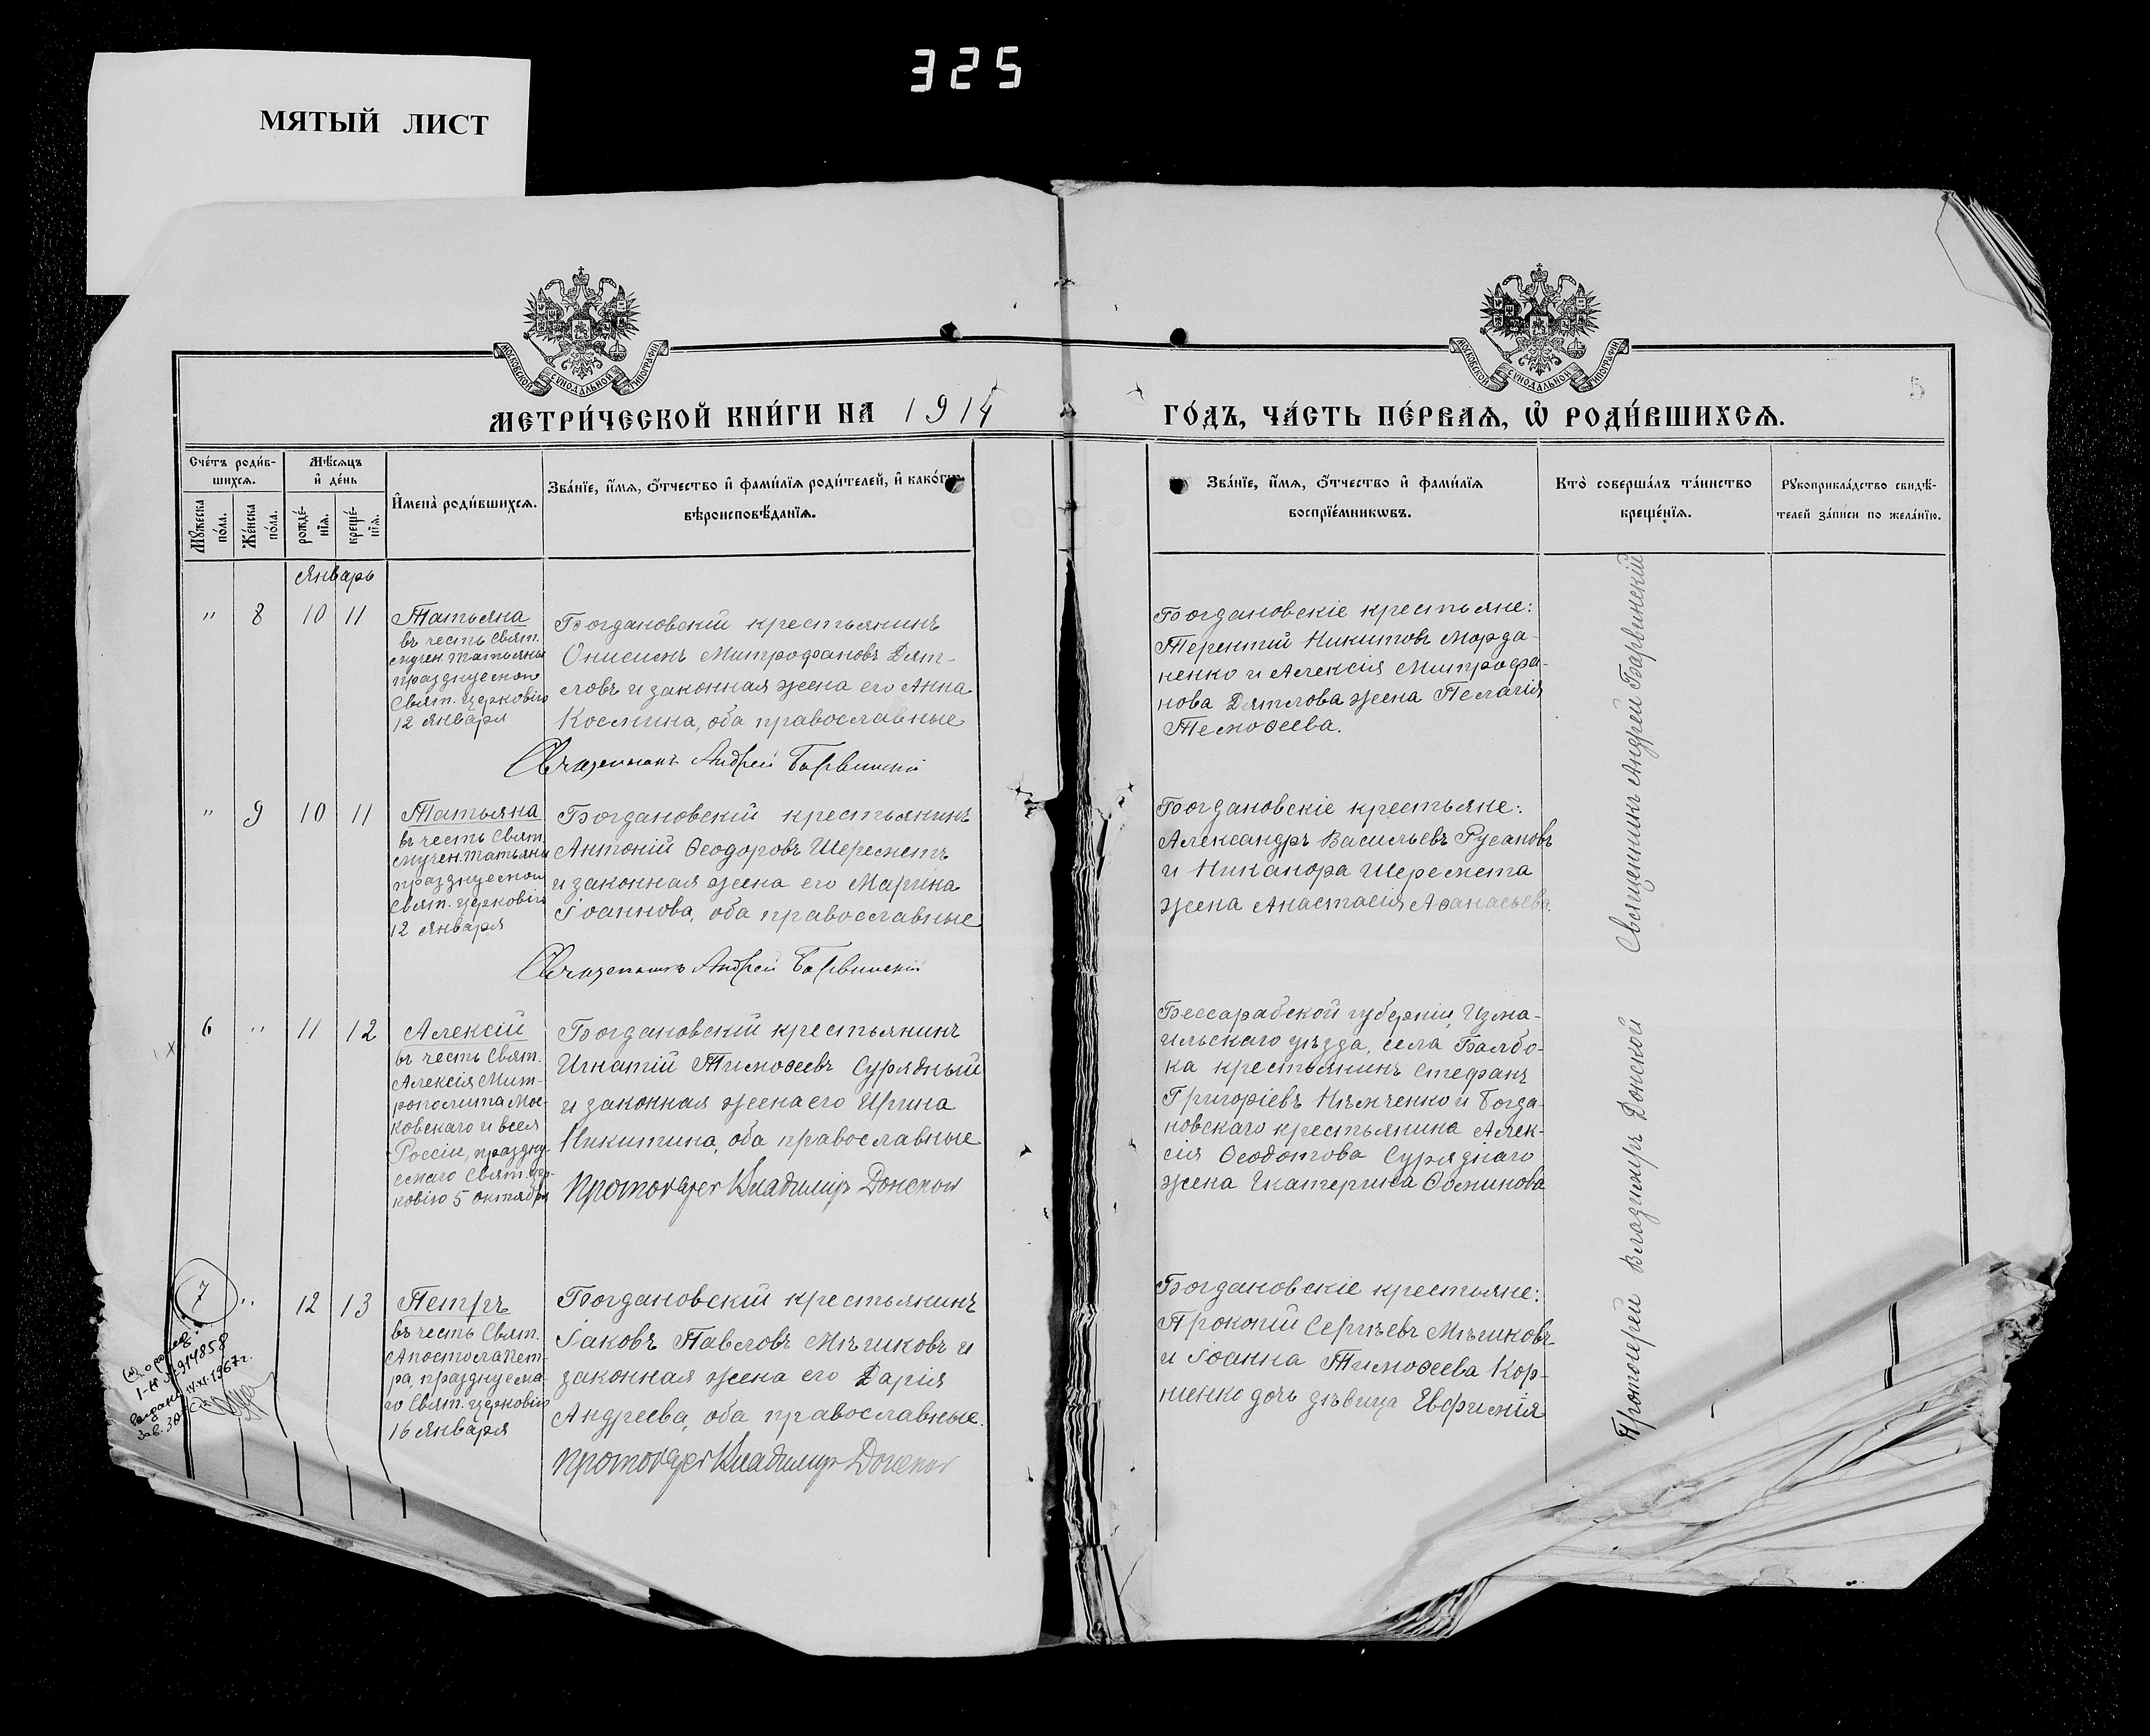 325
МЯТЫЙ ЛИСТ
МОСКОВСКОЙ СѴНОДАЛЬНОЙ ТИПОГРАФІИ
МОСКОВСКОЙ СѴНОДАЛЬНОЙ ТИПОГРАФІИ
5
МЕТРИ́ЧЕСКОЙ КНИ́ГИ НА 1914
ГО́ДЪ, ЧА́СТЬ ПЕ́РВАѦ, Ѡ҆ РОДИ́ВШИХСѦ.
Сче́тъ роди́в-
шихсѧ.
Мѣ́сѧцъ
и҆ де́нь
Мꙋ́жеска
по́ла.
Же́нска
по́ла.
рожде́-
нїѧ.
креще́-
нїѧ.
И҆мена̀ роди́вшихсѧ.
Зва́нїе, и҆́мѧ, ѻ҆́тчество и҆ фами́лїѧ роди́телей, и҆ како́гѡ
вѣроисповѣ́данїѧ.
Зва́нїе, и҆́мѧ, ѻ҆́тчество и҆ фами́лїѧ
воспрїе́мникѡвъ.
Кто̀ соверша́лъ та́инство
креще́нїѧ.
Рꙋкоприкла́дство свидѣ́-
телей за́писи по жела́нїю.
Январь
" 8 10 11
Татьяна
въ честь Свят.
мучен. Татьяны
празднуемой
Свят. церковію
12 января
Богдановскій крестьянинъ
Онисимъ Митрофановъ Дят-
ловъ и законная жена его Анна
Космина, оба православные
Священникъ Андрей Барвинскій
Богдановскіе крестьяне:
Терентій Никитовъ Морда-
ненко и Алексія Митрофа-
нова Дятлова жена Пелагія
Тимоѳеева.
" 9 10 11
Татьяна
въ честь Свят.
мучен. Татьяны
празднуемой
Свят. церковію
12 января
Богдановскій крестьянинъ
Антоній Ѳеодоровъ Шереметъ
и законная жена его Марина
Іоаннова, оба православные
Священникъ Андрей Барвинскій
Богдановскіе крестьяне:
Александръ Васильевъ Русановъ
и Никанора Шеремета
жена Анастасія Аѳанасьева.
Священникъ Андрей Барвинскій
6 " 11 12
Алексій
въ честь Свят.
Алексія Мит-
рополита Мос-
ковскаго и всея
Россіи, праздну-
емаго Свят. цер-
ковію 5 октября
Богдановскій крестьянинъ
Игнатій Тимоѳеевъ Сурядный
и законная жена его Ирина
Никитина, оба православные
Протоіерей Владимиръ Донской
Бессарабской губерніи, Изма-
ильскаго уѣзда, села Балбо-
ка крестьянинъ Стефанъ
Григоріевъ Нѣмченко и Богда-
новскаго крестьянина Алек-
сія Ѳеодотова Суряднаго
жена Екатерина Ѳомина
7 " 12 13
Петръ
въ честь Свят.
Апостола Пет-
ра, празднуема-
го Свят. церковію
16 января
Богдановскій крестьянинъ
Іаковъ Павловъ Мѣшковъ и
законная жена его Дарія
Андреева, оба православные.
Протоіерей Владимиръ Донской
Богдановскіе крестьяне:
Прокопій Сергѣевъ Мѣшковъ
и Іоанна Тимоѳеева Кор-
ніенко дочь дѣвица Евфимія
Протоіерей Владимиръ Донской
914858
1967г.